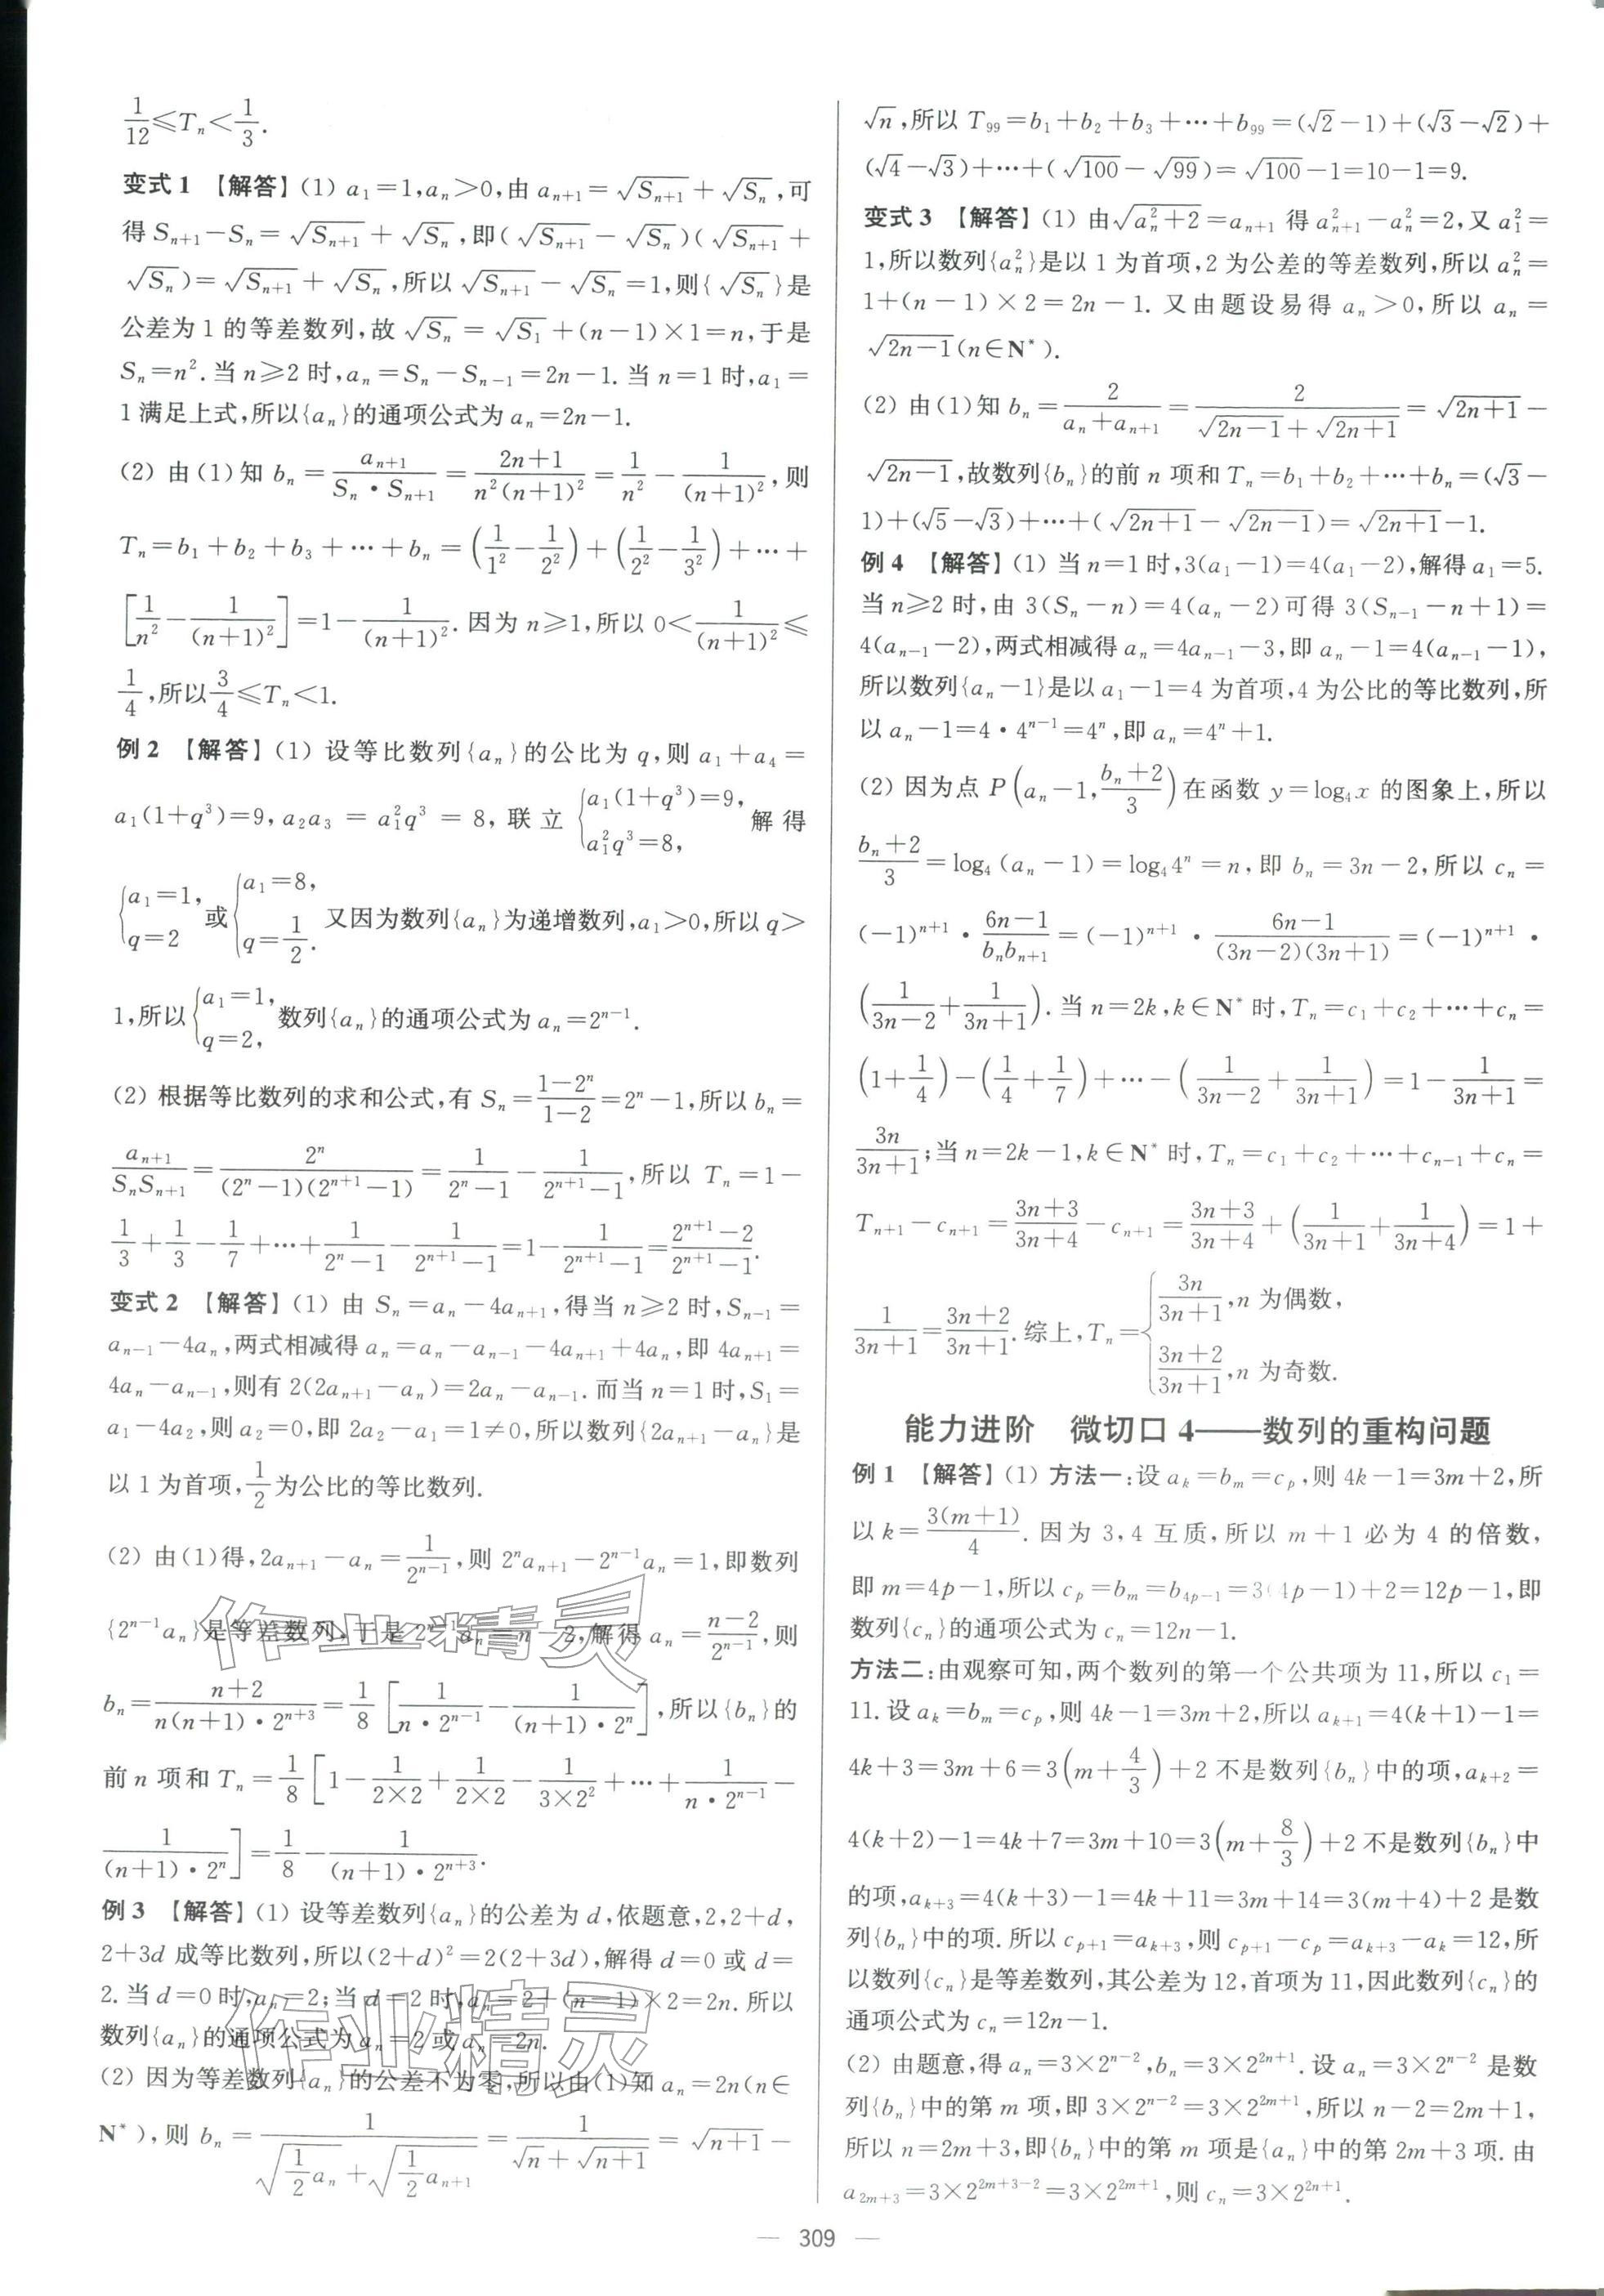 1/12≤Tₙ<1/3.
变式1 【解答】(1) a₁=1,aₙ>0,由 aₙ₊₁=√Sₙ₊₁+√Sₙ,可
得 Sₙ₊₁-Sₙ=√Sₙ₊₁+√Sₙ,即(√Sₙ₊₁-√Sₙ)(√Sₙ₊₁+
√Sₙ)=√Sₙ₊₁+√Sₙ,所以√Sₙ₊₁-√Sₙ=1,则{√Sₙ}是
公差为1的等差数列,故√Sₙ=√S₁+(n-1)×1=n,于是
Sₙ=n².当n≥2时,aₙ=Sₙ-Sₙ₋₁=2n-1.当n=1时,a₁=
1满足上式,所以{aₙ}的通项公式为aₙ=2n-1.
(2) 由(1)知 bₙ=aₙ₊₁/(Sₙ·Sₙ₊₁)=(2n+1)/(n²(n+1)²)=1/n²-1/(n+1)²,则
Tₙ=b₁+b₂+b₃+…+bₙ=(1/1²-1/2²)+(1/2²-1/3²)+…+
[1/n²-1/(n+1)²]=1-1/(n+1)².因为n≥1,所以0<1/(n+1)²≤
1/4,所以3/4≤Tₙ<1.
例2 【解答】(1) 设等比数列{aₙ}的公比为q,则a₁+a₄=
a₁(1+q³)=9,a₂a₃=a₁²q³=8,联立{a₁(1+q³)=9, a₁²q³=8, 解得
{a₁=1, q=2 或{a₁=8, q=1/2. 又因为数列{aₙ}为递增数列,a₁>0,所以q>
1,所以{a₁=1, q=2, 数列{aₙ}的通项公式为aₙ=2ⁿ⁻¹.
(2) 根据等比数列的求和公式,有Sₙ=(1-2ⁿ)/(1-2)=2ⁿ-1,所以bₙ=
aₙ₊₁/(SₙSₙ₊₁)=2ⁿ/((2ⁿ-1)(2ⁿ⁺¹-1))=1/(2ⁿ-1)-1/(2ⁿ⁺¹-1),所以 Tₙ=1-
1/3+1/3-1/7+…+1/(2ⁿ-1)-1/(2ⁿ⁺¹-1)=1-1/(2ⁿ⁺¹-1)=(2ⁿ⁺¹-2)/(2ⁿ⁺¹-1).
变式2 【解答】(1) 由Sₙ=aₙ-4aₙ₊₁,得当n≥2时,Sₙ₋₁=
aₙ₋₁-4aₙ,两式相减得aₙ=aₙ-aₙ₋₁-4aₙ₊₁+4aₙ,即4aₙ₊₁=
4aₙ-aₙ₋₁,则有2(2aₙ₊₁-aₙ)=2aₙ-aₙ₋₁.而当n=1时,S₁=
a₁-4a₂,则a₂=0,即2a₂-a₁=1≠0,所以数列{2aₙ₊₁-aₙ}是
以1为首项,1/2为公比的等比数列.
(2) 由(1)得,2aₙ₊₁-aₙ=1/2ⁿ⁻¹,则2ⁿaₙ₊₁-2ⁿ⁻¹aₙ=1,即数列
{2ⁿ⁻¹aₙ}是等差数列,于是2ⁿ⁻¹aₙ=n-2,解得aₙ=(n-2)/2ⁿ⁻¹,则
bₙ=(n+2)/(n(n+1)·2ⁿ⁺³)=1/8[1/(n·2ⁿ⁻¹)-1/((n+1)·2ⁿ)],所以{bₙ}的
前n项和Tₙ=1/8[1-1/(2×2)+1/(2×2)-1/(3×2²)+…+1/(n·2ⁿ⁻¹)-
1/((n+1)·2ⁿ)]=1/8-1/((n+1)·2ⁿ⁺³).
例3 【解答】(1) 设等差数列{aₙ}的公差为d,依题意,2,2+d,
2+3d成等比数列,所以(2+d)²=2(2+3d),解得d=0或d=
2.当d=0时,aₙ=2;当d=2时,aₙ=2+(n-1)×2=2n.所以
数列{aₙ}的通项公式为aₙ=2或aₙ=2n.
(2) 因为等差数列{aₙ}的公差不为零,所以由(1)知aₙ=2n(n∈
N*),则bₙ=1/(√(1/2 aₙ)+√(1/2 aₙ₊₁))=1/(√n+√(n+1))=√(n+1)-
√n,所以T₉₉=b₁+b₂+b₃+…+b₉₉=(√2-1)+(√3-√2)+
(√4-√3)+…+(√100-√99)=√100-1=10-1=9.
变式3 【解答】(1) 由√(aₙ²+2)=aₙ₊₁得aₙ₊₁²-aₙ²=2,又a₁²=
1,所以数列{aₙ²}是以1为首项,2为公差的等差数列,所以aₙ²=
1+(n-1)×2=2n-1.又由题设易得aₙ>0,所以aₙ=
√(2n-1)(n∈N*).
(2) 由(1)知bₙ=2/(aₙ+aₙ₊₁)=2/(√(2n-1)+√(2n+1))=√(2n+1)-
√(2n-1),故数列{bₙ}的前n项和Tₙ=b₁+b₂+…+bₙ=(√3-
1)+(√5-√3)+…+(√(2n+1)-√(2n-1))=√(2n+1)-1.
例4 【解答】(1) 当n=1时,3(a₁-1)=4(a₁-2),解得a₁=5.
当n≥2时,由3(Sₙ-n)=4(aₙ-2)可得3(Sₙ₋₁-n+1)=
4(aₙ₋₁-2),两式相减得aₙ=4aₙ₋₁-3,即aₙ-1=4(aₙ₋₁-1),
所以数列{aₙ-1}是以a₁-1=4为首项,4为公比的等比数列,所
以aₙ-1=4·4ⁿ⁻¹=4ⁿ,即aₙ=4ⁿ+1.
(2) 因为点P(aₙ-1,(bₙ+2)/3)在函数y=log₄x的图象上,所以
(bₙ+2)/3=log₄(aₙ-1)=log₄4ⁿ=n,即bₙ=3n-2,所以cₙ=
(-1)ⁿ⁺¹·(6n-1)/(bₙbₙ₊₁)=(-1)ⁿ⁺¹·(6n-1)/((3n-2)(3n+1))=(-1)ⁿ⁺¹·
(1/(3n-2)+1/(3n+1)).当n=2k,k∈N*时,Tₙ=c₁+c₂+…+cₙ=
(1+1/4)-(1/4+1/7)+…-(1/(3n-2)+1/(3n+1))=1-1/(3n+1)=
3n/(3n+1);当n=2k-1,k∈N*时,Tₙ=c₁+c₂+…+cₙ₋₁+cₙ=
Tₙ₊₁-cₙ₊₁=(3n+3)/(3n+4)-cₙ₊₁=(3n+3)/(3n+4)+(1/(3n+1)+1/(3n+4))=1+
1/(3n+1)=(3n+2)/(3n+1).综上,Tₙ={3n/(3n+1),n为偶数, (3n+2)/(3n+1),n为奇数.
能力进阶 微切口4——数列的重构问题
例1 【解答】(1) 方法一:设aₖ=bₘ=cₚ,则4k-1=3m+2,所
以k=3(m+1)/4.因为3,4互质,所以m+1必为4的倍数,
即m=4p-1,所以cₚ=bₘ=b₄ₚ₋₁=3(4p-1)+2=12p-1,即
数列{cₙ}的通项公式为cₙ=12n-1.
方法二:由观察可知,两个数列的第一个公共项为11,所以c₁=
11.设aₖ=bₘ=cₚ,则4k-1=3m+2,所以aₖ₊₁=4(k+1)-1=
4k+3=3m+6=3(m+4/3)+2不是数列{bₙ}中的项,aₖ₊₂=
4(k+2)-1=4k+7=3m+10=3(m+8/3)+2不是数列{bₙ}中
的项,aₖ₊₃=4(k+3)-1=4k+11=3m+14=3(m+4)+2是数
列{bₙ}中的项.所以cₚ₊₁=aₖ₊₃,则cₚ₊₁-cₚ=aₖ₊₃-aₖ=12,所
以数列{cₙ}是等差数列,其公差为12,首项为11,因此数列{cₙ}的
通项公式为cₙ=12n-1.
(2) 由题意,得aₙ=3×2ⁿ⁻²,bₙ=3×2²ⁿ⁺¹.设aₙ=3×2ⁿ⁻²是数
列{bₙ}中的第m项,即3×2ⁿ⁻²=3×2²ᵐ⁺¹,所以n-2=2m+1,
所以n=2m+3,即{bₙ}中的第m项是{aₙ}中的第2m+3项.由
a₂ₘ₊₃=3×2²ᵐ⁺³⁻²=3×2²ᵐ⁺¹,则cₙ=3×2²ⁿ⁺¹.
— 309 —
作业精灵
作业精灵